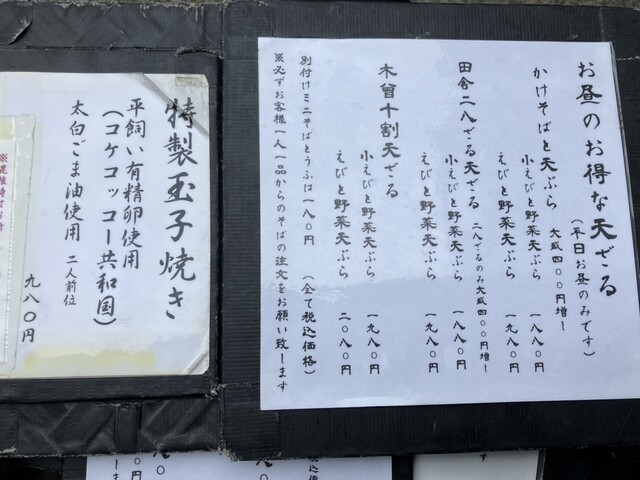 お昼のお得な天ざる
(平日お昼のみです)
かけそばと天ぷら 大盛四〇〇円増し
小えびと野菜天ぷら 一八八〇円
えびと野菜天ぷら 一九八〇円
田舎二八ざる天ざる 二八ざるのみ大盛四〇〇円増し
小えびと野菜天ぷら 一八八〇円
えびと野菜天ぷら 一九八〇円
木曽十割天ざる
小えびと野菜天ぷら 一九八〇円
えびと野菜天ぷら 二〇八〇円
別付けミニそばとうふは一八〇円 (全て税込価格)
※必ずお客様一人一品からのそばの注文をお願い致します
特製玉子焼き
平飼い有精卵使用
(コケコッコー共和国)
太白ごま油使用 二人前位
九八〇円